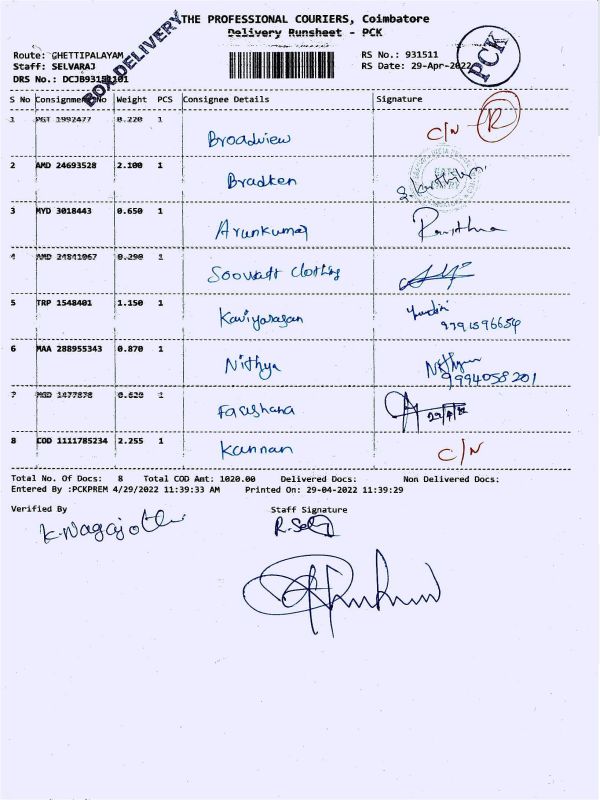 THE PROFESSIONAL COURIERS, Coimbatore
Delivery Runsheet - PCK
BOX DELIVERY
PCK
Route: CHETTIPALAYAM
RS No.: 931511
Staff: SELVARAJ
RS Date: 29-Apr-2022
DRS No.: DCJB93151101
S No Consignment No Weight PCS Consignee Details Signature
1 PGT 1992477 0.220 1 Broadview C/N R
2 AMD 24693528 2.100 1 Bradken
3 MYD 3018443 0.650 1 Arunkumar
4 AMD 24841067 0.290 1 Clothing
5 TRP 1548401 1.150 1 Kaviyarasan
9791596654
6 MAA 288955343 0.870 1 Nithya Nithya
9994058201
7 MGD 1477878 0.620 1 Farshana
8 COD 1111785234 2.255 1 Kannan C/N
Total No. Of Docs: 8 Total COD Amt: 1020.00 Delivered Docs: Non Delivered Docs:
Entered By :PCKPREM 4/29/2022 11:39:33 AM Printed On: 29-04-2022 11:39:29
Verified By Staff Signature
K. Nagajothi